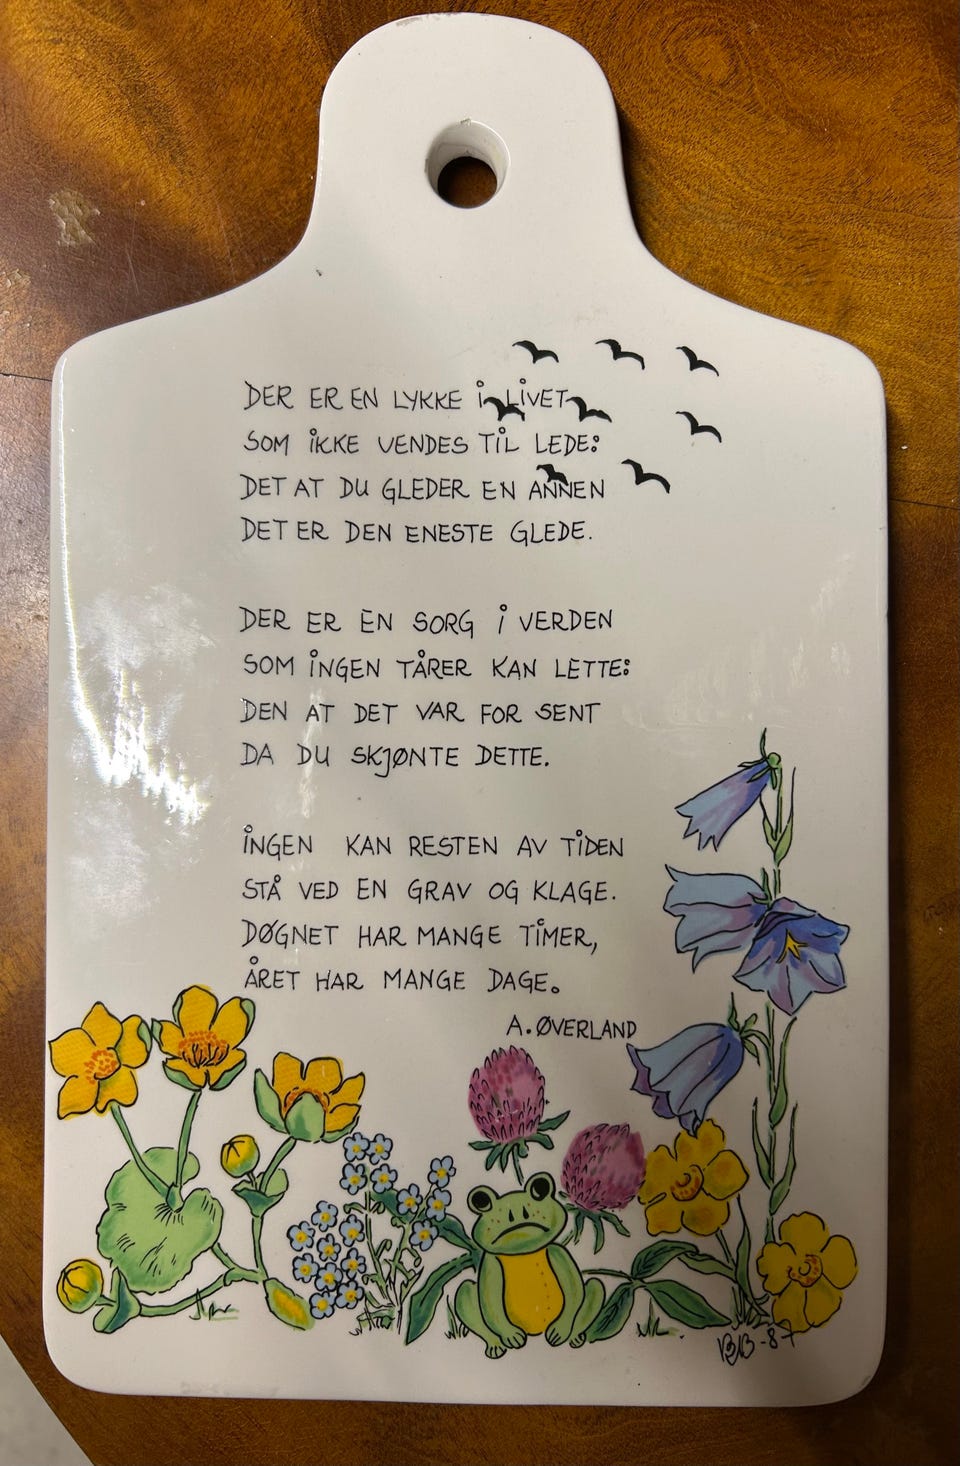 DER ER EN LYKKE i LiVET
SOM iKKE VENDES TiL LEDE:
DET AT DU GLEDER EN ANNEN
DET ER DEN ENESTE GLEDE.
DER ER EN SORG i VERDEN
SOM iNGEN TÅRER KAN LETTE:
DEN AT DET VAR FOR SENT
DA DU SKJØNTE DETTE.
iNGEN KAN RESTEN AV TiDEN
STÅ VED EN GRAV OG KLAGE.
DØGNET HAR MANGE TiMER,
ÅRET HAR MANGE DAGE.
A. ØVERLAND
-87